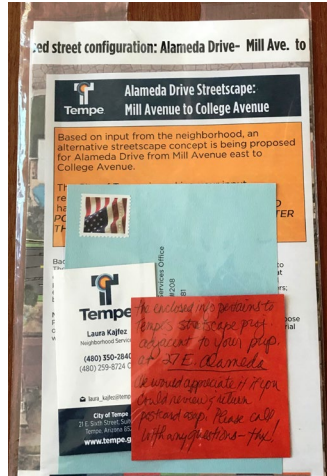 ed street configuration: Alameda Drive- Mill Ave. to
Tempe
Alameda Drive Streetscape:
Mill Avenue to College Avenue
Based on input from the neighborhood, an
alternative streetscape concept is being proposed
for Alameda Drive from Mill Avenue east to
College Avenue.
ervices Office
#208
81
Tempe
Laura Kajfez
Neighborhood Servic
(480) 350-284
(480) 259-8724 C
laura_kajfez@temp
City of Tempe
21 E. Sixth Street, Suit
Tempe, Arizona 85
www.tem
The enclosed info pertains to
Tempe's streetscape proj.
adjacent to your prop.
at 27 E. Alameda
We would appreciate it if you
could review & return
postcard asap. Please call
with any questions - thx!